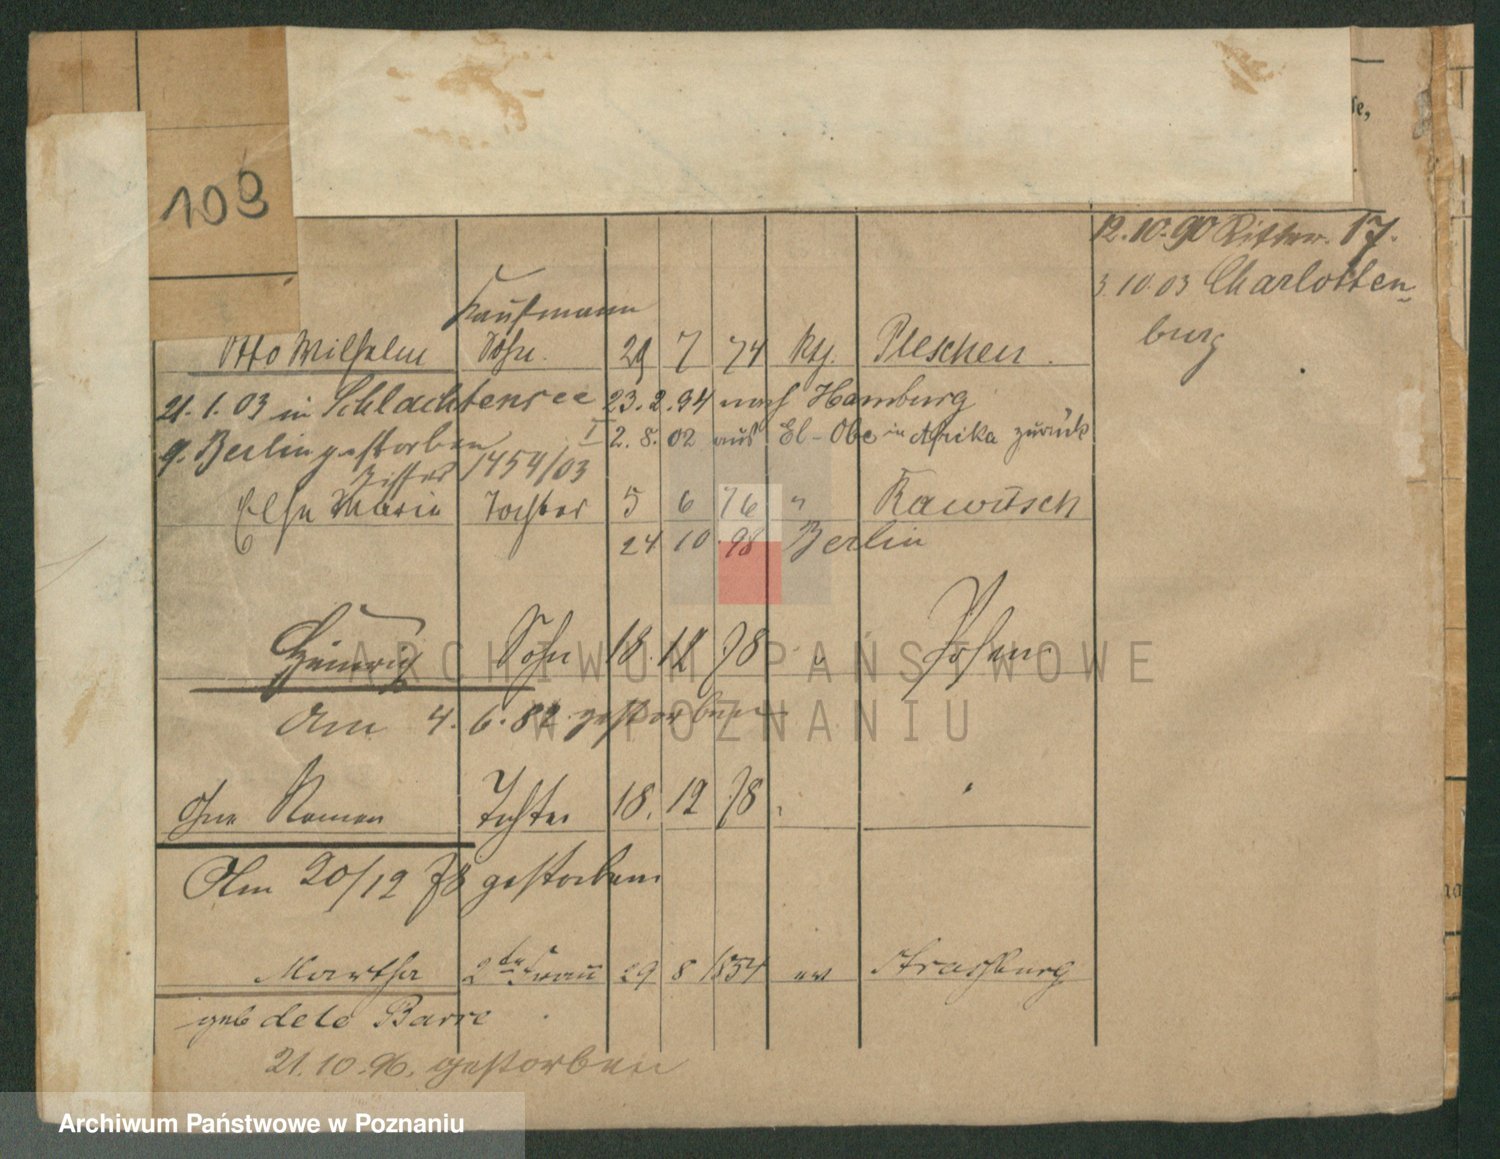 se,
109
12.10.90 Ritter. 17.
3.10.03 Charlotten-
burg
Kaufmann
Otto Wilhelm Sohn. 29 7 74 kth. Pleschen.
21.1.03 in Schlachtensee 23.2.94 nach Hamburg
b. Berlin gestorben I 2.8.02 aus El-Obe in Afrika zurück
1454/03
Else Maria Tochter 5 6 76 " Rawitsch
24 10 98 Berlin
Heinrich Sohn 18. 12 78 " Posen
Am 4. 6. 82 gestorben
Ohne Namen Tochter 18. 12 78 "
Am 20/12 78 gestorben
Martha 2te Frau 29 8 1854 ev Strassburg
geb de le Barre
21.10.96. gestorben
ARCHIWUM PAŃSTWOWE
W POZNANIU
Archiwum Państwowe w Poznaniu